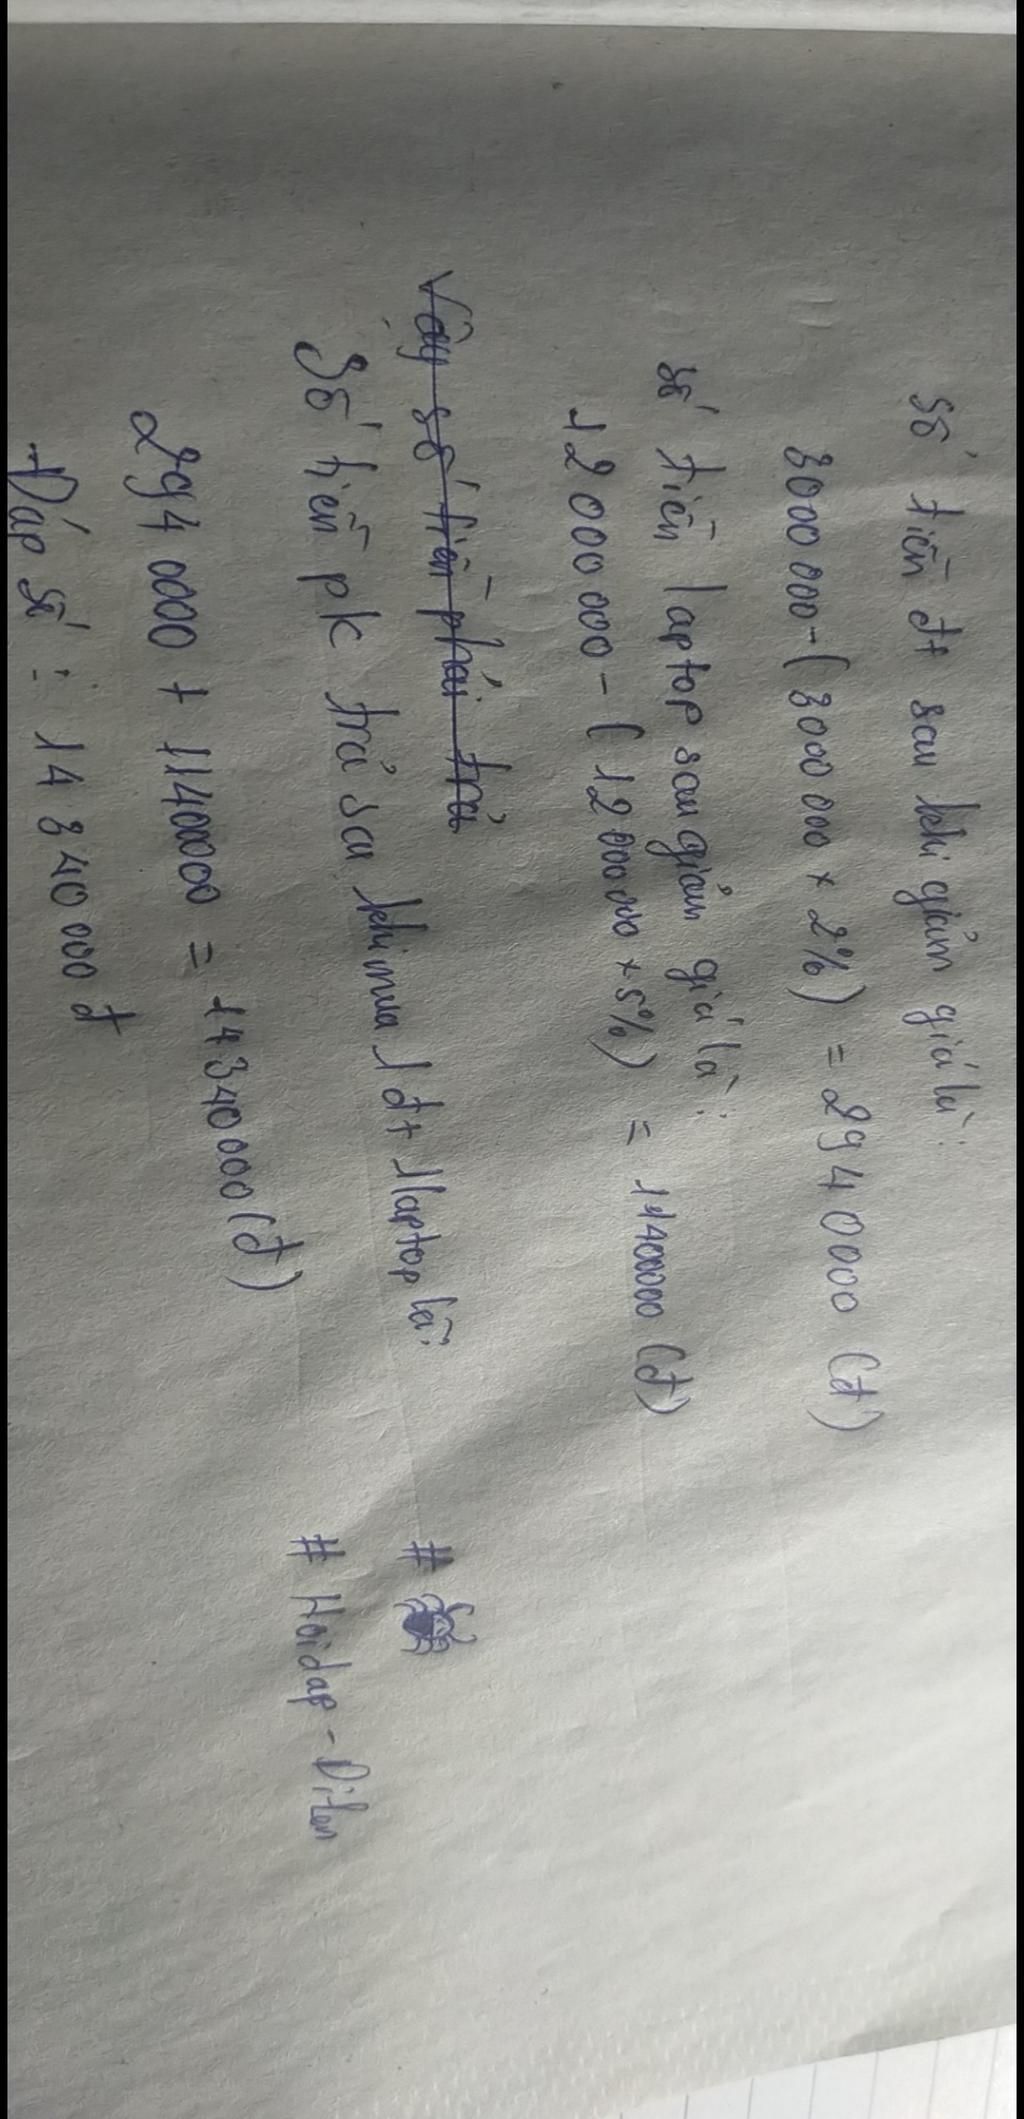 Số tiền đt sau khi giảm giá là:
3000 000 - (3000 000 × 2%) = 294 0000 (đ)
Số tiền laptop sau giảm giá là:
12 000 000 - (12 000 000 × 5%) = 11400000 (đ)
Vậy số tiền phải trả
Số tiền pk trả sau khi mua 1 đt 1 laptop là:
294 0000 + 11400000 = 14 340 000 (đ)
Đáp số: 14 340 000 đ
#
# Hoidap-Diten